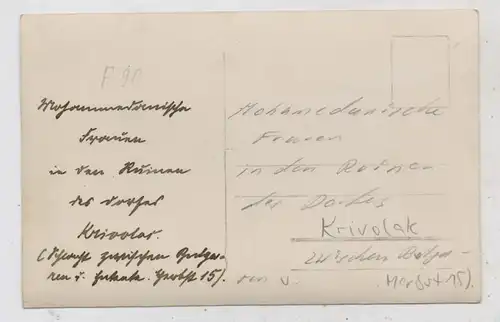 F 90
Mohammedanische
Frauen
in den Ruinen
des Dorfes
Krivolac.
(Schlacht zwischen Bulga-
ren u. Entente. Herbst 15).
Mohamedanische
Frauen
in den Ruinen
des Dorfes
Krivolak
zwischen Bulga-
ren u. Herbst 15).